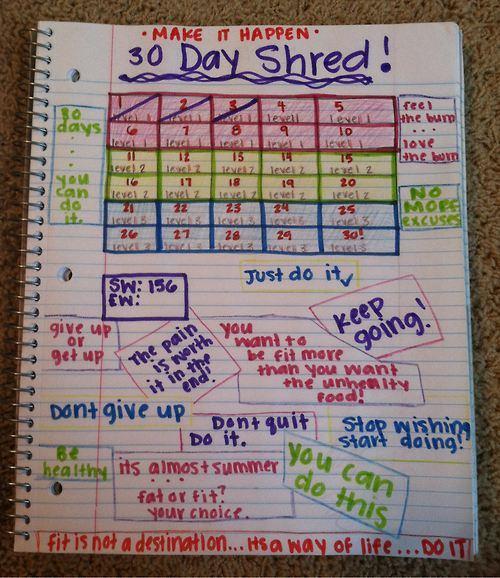 • MAKE IT HAPPEN •
30 Day Shred!
30
days
...
you
can
do
it.
1 2 3 4 5
level 1 level 1 level 1 level 1 level 1
6 7 8 9 10
level 1 level 1 level 1 level 1 level 1
11 12 13 14 15
level 2 level 2 level 2 level 2 level 2
16 17 18 19 20
level 2 level 2 level 2 level 2 level 2
21 22 23 24 25
level 3 level 3 level 3 level 3 level 3
26 27 28 29 30!
level 3 level 3 level 3 level 3 level 3
feel
the burn
...
love
the burn
NO
MORE
EXCUSES
Just do it
SW: 156
EW:
Keep
going!
give up
or
get up
The pain
is worth
it in the
end!
you
want to
be fit more
than you want
the unhealty
food!
Dont give up
Dont quit
Do it.
Stop wishing
start doing!
Be
healthy
its almost summer
...
fat or fit?
your choice.
you can
do this
fit is not a destination... its a way of life... DO IT